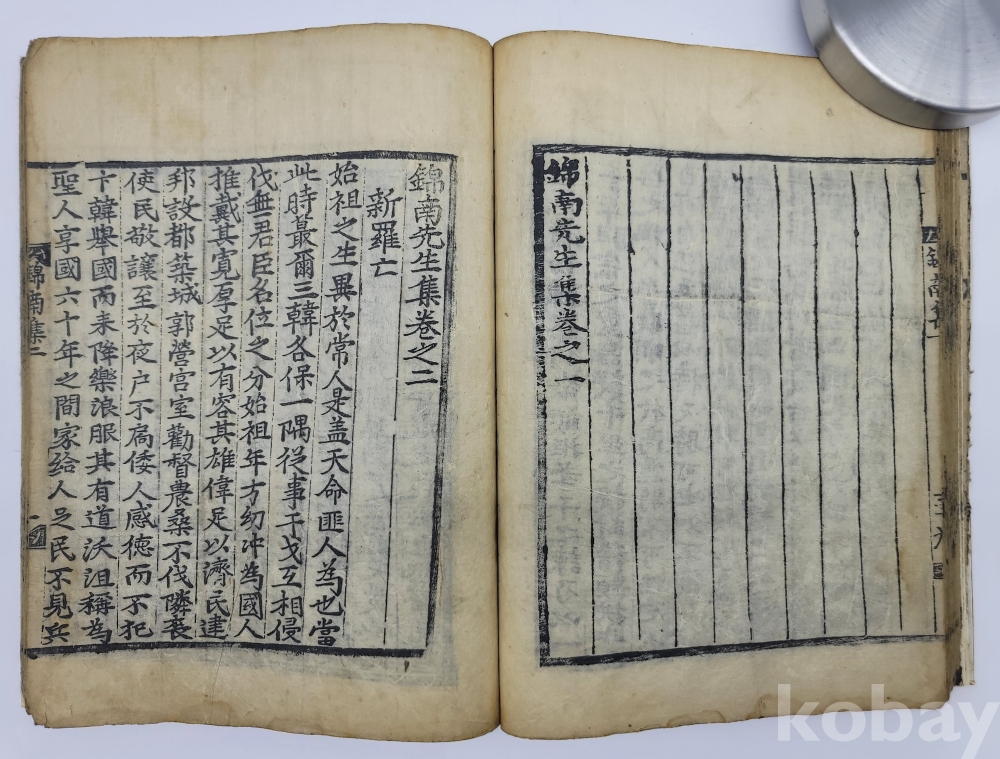 錦南先生集卷之一
錦南先生集卷之二
新羅亡
始祖之生異於常人是盖天命匪人為也當
此時蕞爾三韓各保一隅從事干戈互相侵
伐無君臣名位之分始祖年方幼冲為國人
推戴其寛厚足以有容其雄偉足以濟民建
邦設都築城郭營宮室勸督農桑不伐隣喪
使民敬讓至於夜户不扃倭人感德而不犯
卞韓擧國而来降樂浪服其有道沃沮稱為
聖人享國六十年之間家給人足民不見兵
錦南集二
一
kobay